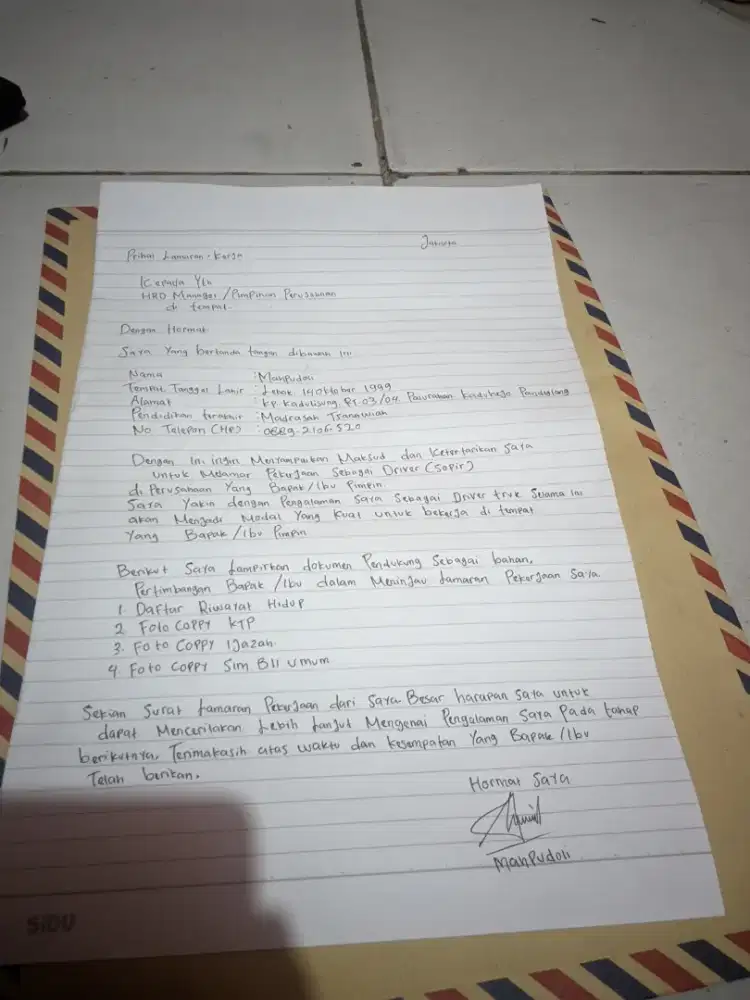 Jakarta
Prihal Lamaran Kerja
Kepada Yth
HRD Manager/Pimpinan Perusahaan
di tempat.
Dengan Hormat
Saya Yang bertanda tangan dibawah Ini
Nama : Mahpudoli
Tempat Tanggal Lahir : Lebak 14 Oktober 1999
Alamat : KP. Kadulisung RT 03/04 Kaduhejo Pandeglang
Pendidikan terakhir : Madrasah Tsanawiah
No Telepon (HP) : 0889-2106-520
Dengan Ini ingin Menyampaikan Maksud dan Ketertarikan Saya
untuk Melamar Pekerjaan Sebagai Driver (Sopir)
di Perusahaan Yang Bapak/Ibu Pimpin.
Saya Yakin dengan Pengalaman Saya Sebagai Driver truk Selama Ini
akan Menjadi Modal Yang Kuat untuk bekerja di tempat
Yang Bapak/Ibu Pimpin
Berikut Saya Lampirkan dokumen Pendukung Sebagai bahan,
Pertimbangan Bapak/Ibu dalam Meninjau Lamaran Pekerjaan Saya.
1. Daftar Riwayat Hidup
2. Foto Coppy KTP
3. Foto Coppy Ijazah.
4. Foto Coppy Sim BII Umum
Sekian Surat Lamaran Pekerjaan dari Saya Besar harapan Saya untuk
dapat Menceritakan Lebih Lanjut Mengenai Pengalaman Saya Pada tahap
berikutnya, Terimakasih atas waktu dan Kesempatan Yang Bapak/Ibu
Telah berikan.
Hormat Saya
Mahpudoli
SiDU